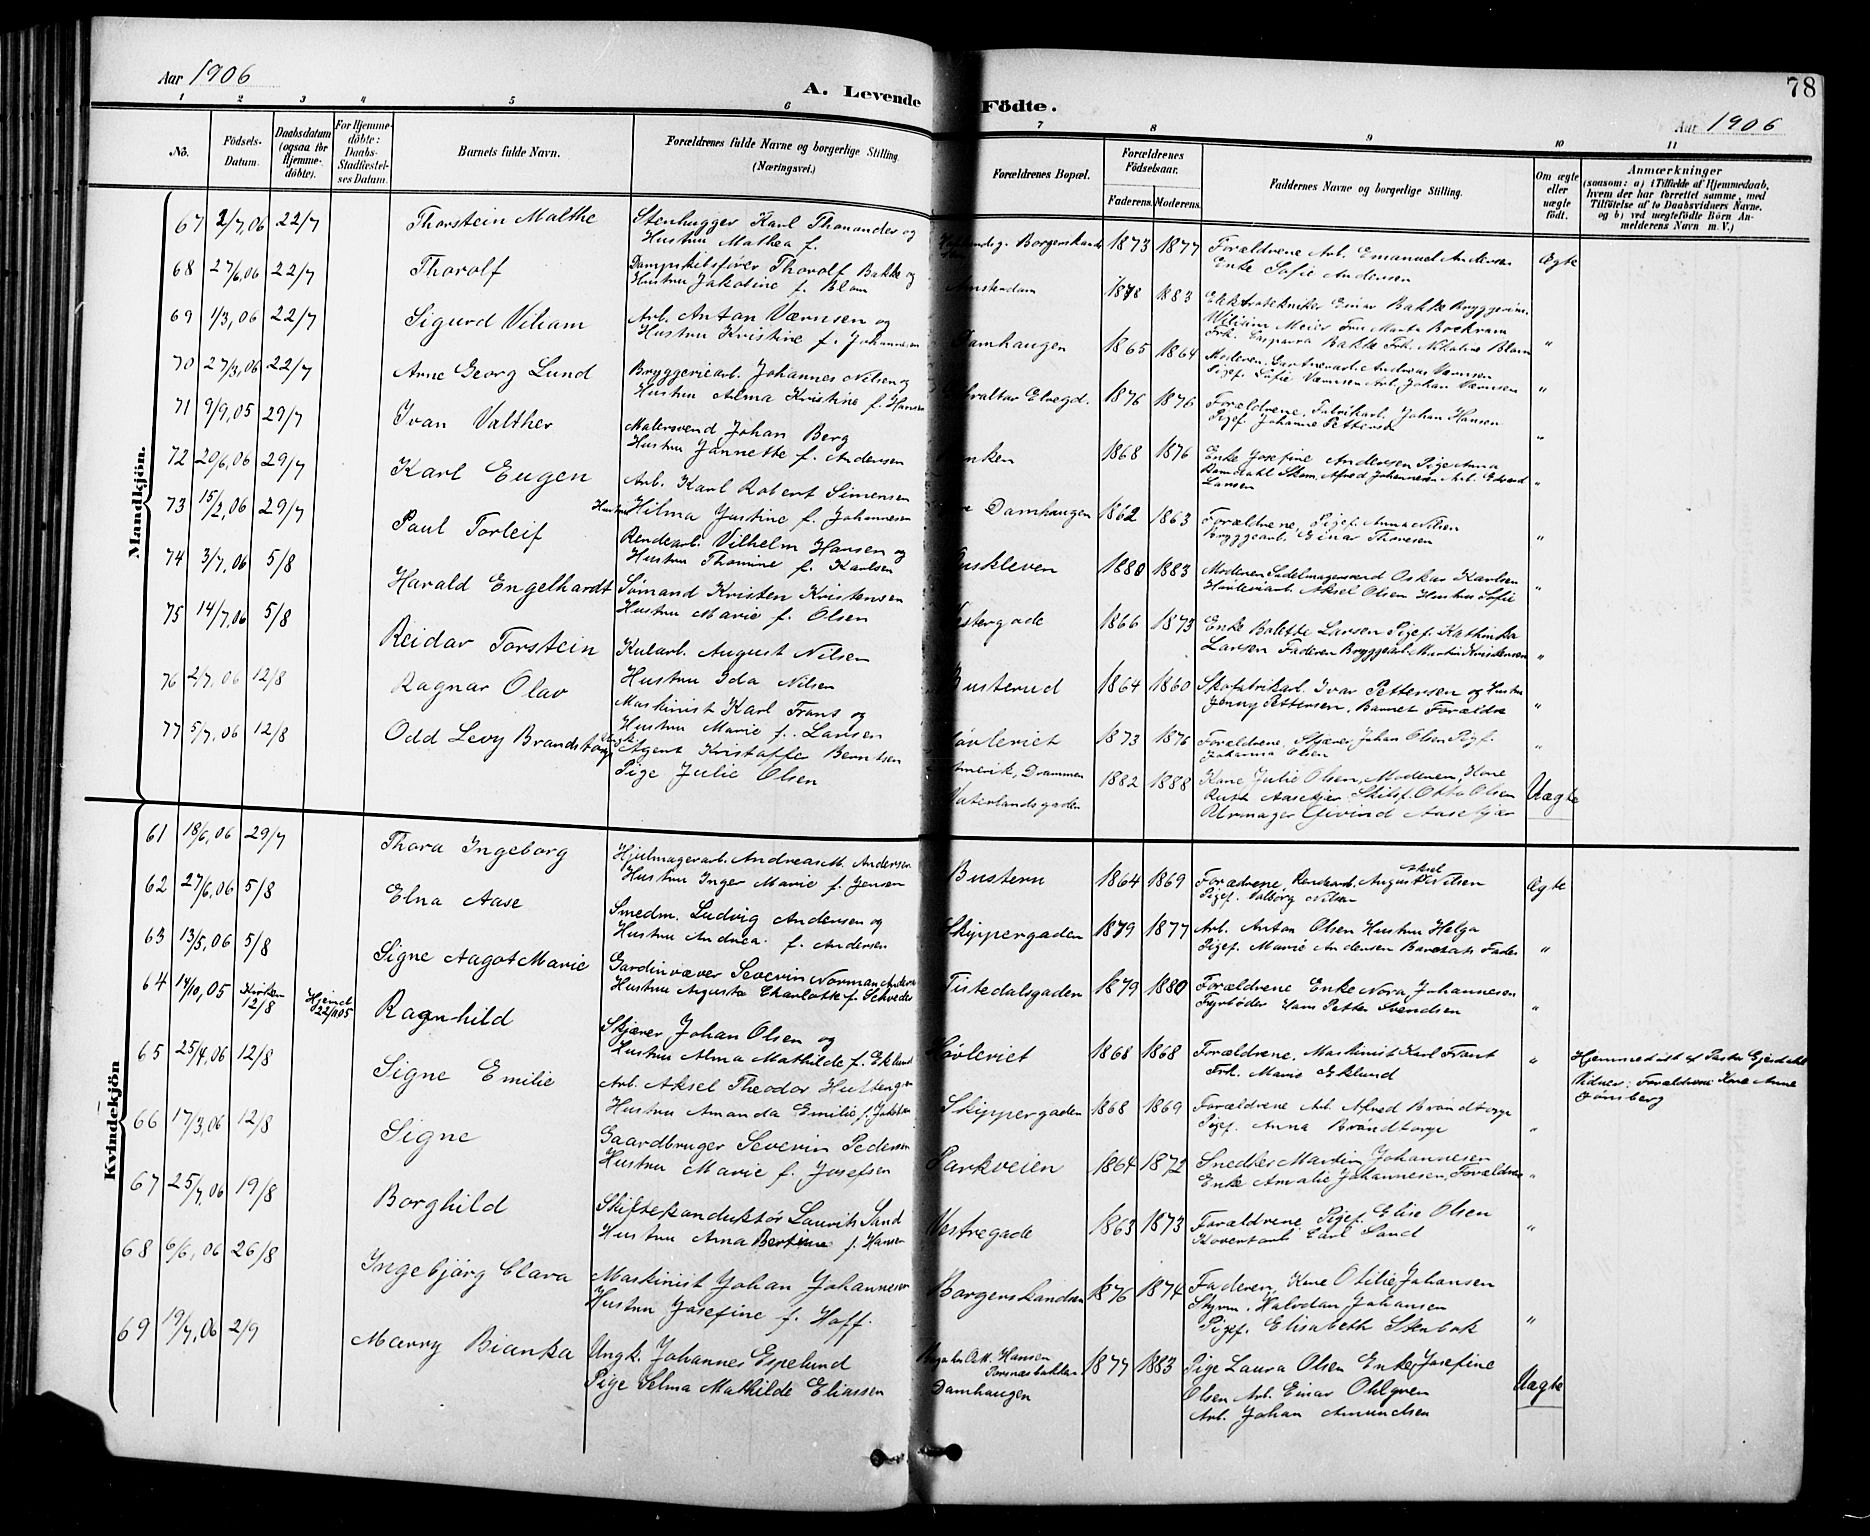 Aar 1906
A. Levende Födte.
78
Aar 1906
1 2 3 4 5 6 7 8 9 10 11
No.
Födsels-Datum.
Daabsdatum (ogsaa for Hjemme-döbte).
For Hjemme-döbte: Daabs-Stadfæstel-ses Datum.
Barnets fulde Navn.
Forældrenes fulde Navne og borgerlige Stilling (Næringsvei.)
Forældrenes Bopæl.
Forældrenes Födselsaar.
Faderens. Moderens.
Faddernes Navne og borgerlige Stilling.
Om ægte eller uægte födt.
Anmærkninger
(saasom: a) i Tilfælde af Hjemmedaab,
hvem der har forrettet samme, med
Tilföielse af to Daabsvidners Navne.
og b) ved uægtefödte Börn An-
melderens Navn m. V.)
Mandkjön.
67 2/7,06 22/7 Thorstein Malthe Stenhugger Karl Thorander og
Hustru Mathea f. Borgerskandsen 1873 1877 Forældrene Arb. Emanuel Andersen Ægte
Enke Sofie Andersen
68 27/6,06 22/7 Thorolf Dampskibsfører Thorolf Bakke og
Hustru Jakobine f. Blom Amsterdam 1878 1883 Elektrotekniker Einar Bakke Bryggerim.
Wiliam Meier Fru Marta Bockman "
Frk. Gasparra Bakke Frk. Nikoline Blom
69 1/3,06 22/7 Sigurd Viliam Arb. Anton Værnsen og
Hustru Kristine f. Johannesen Damhaugen 1865 1864 Moderen, Gartnerarb. Andreas Værnsen
Pigef. Sofie Værnsen Arb. Johan Værnsen "
70 27/3,06 22/7 Arne Georg Lund Bryggeriearb. Johannes Nilsen og
Hustru Alma Kristine f. Hansen Elvegd. 1876 1876 Forældrene, Fabrikarb. Johan Hansen
Pigef. Johanne Pettersen "
71 9/9,05 29/7 Ivan Valther Malersvend Johan Berg
Hustru Jannette f. Andersen 1868 1876 Enke Josefine Andersen Pige Anna
Ramdahl Skom. Alfred Johannesen Arb. Edvard "
Larsen
72 20/6,06 29/7 Karl Eugen Arb. Karl Robert Simensen
Hustru Hilma Justine f. Johannesen Damhaugen 1862 1863 Forældrene, Pigef. Anna Nilsen
Bryggearb. Einar Thoresen "
73 15/2,06 29/7 Paul Torleif Rendearb. Vilhelm Hansen og
Hustru Thomine f. Karlsen 1880 1883 Moderen Sadelmagersvend Oskar Karlsen
Høvleriarb. Aksel Olsen Hustru Sofie "
74 3/7,06 5/8 Harald Engelhardt Sømand Kristen Kristensen
Hustru Marie f. Olsen 1866 1873 Enke Bolette Larsen Pigef. Kathinka
Larsen Faderen Bryggearb. Martin Kristensen "
75 14/7,06 5/8 Reidar Torstein Kularb. August Nilsen
Hustru Ida Nilsen Busterud 1864 1860 Skofabrikarb. Ivar Pettersen og Hustru
Jenny Pettersen, Barnet Forældre "
76 2/7,06 12/8 Ragnar Olav Maskinist Karl Frans og
Hustru Marie f. Larsen Høvleriet 1873 1876 Forældrene, Skjærer Johan Olsen Pigef.
Johanna Olsen "
77 5/7,06 12/8 Odd Levy Brandstorp Agent Kristoffer Berntsen
Pige Julie Olsen Drammen
Vaterlandsgaden 1882 1888 Kone Julie Olsen, Moderen, Kone
Ruth Aasekjær Skibsf. Otto Olsen Uægte
Urmager Eivind Aasekjær
Kvindekjön
61 18/6,06 29/7 Thora Ingeborg Hjulmagerarb. Andreas M. Andersen
Hustru Inger Marie f. Jensen Busteru 1864 1869 Forældrene, Rendearb. August Nilsen Ægte
Pigef. Valborg Nilsen
62 27/6,06 5/8 Elna Aase Smedm. Ludvig Andersen og
Hustru Andrea f. Andersen Skippergaden 1879 1877 Arb. Anton Olsen Hustru Helga
Pigef. Marie Andersen Barnets Fader "
63 13/5,06 5/8 Signe Aagot Marie Gardinvæver Severin Norman Andersen
Hustru Augusta Charlotte f. Schveder Tistedalsgaden 1879 1880 Forældrene Enke Nora Johannesen
Fyrbøder Hans Petter Svendsen "
64 14/10,05 Kirken 12/8 Hjemd. 22/11 05 Ragnhild Skjærer Johan Olsen og
Hustru Alma Mathilde f. Eklund Høvleriet 1868 1868 Forældrene, Maskinist Karl Frant " Hjemmedøbt af Pastor Gjerdahl
Frk. Marie Eklund Vidner: Forældrene Kone Anne
Jønsberg
65 25/4,06 12/8 Signe Emilie Arb. Aksel Theodor Huttengren
Hustru Amanda Emilie f. Skippergaden 1868 1869 Forældrene Arb. Alfred Brandtorp
Pigef. Anna Brandtorp "
66 17/3,06 12/8 Signe Gaardbruger Severin Pedersen
Hustru Marie f. Josefsen Parkveien 1864 1872 Snedker Martin Johannesen
Enke Amalie Johannesen, Forældrene "
67 25/7,06 19/8 Borghild Skiftekonduktør Laurits Sand
Hustru Anna Bertine f. Hansen Vestregade 1863 1873 Forældrene Pigef. Elise Olsen
Carl Sand "
68 6/6,06 26/8 Ingebjørg Clara Maskinist Johan Johannesen
Hustru Josefine f. Hoff. Borgerskandsen 1876 1874 Faderen, Kone Otilie Johansen
Styrm. Halvdan Johansen
Pigef. Elisabeth Stenbok "
69 19/7,06 2/9 Marry Bianka Ungk. Johannes Espelund
Pige Selma Mathilde Eliassen Hansen
Torsnæsbakken
Damhaugen 1877 1883 Pige Laura Olsen Enke Josefine
Olsen Arb. Einar Ohlgren Uægte
Arb. Johan Amundsen